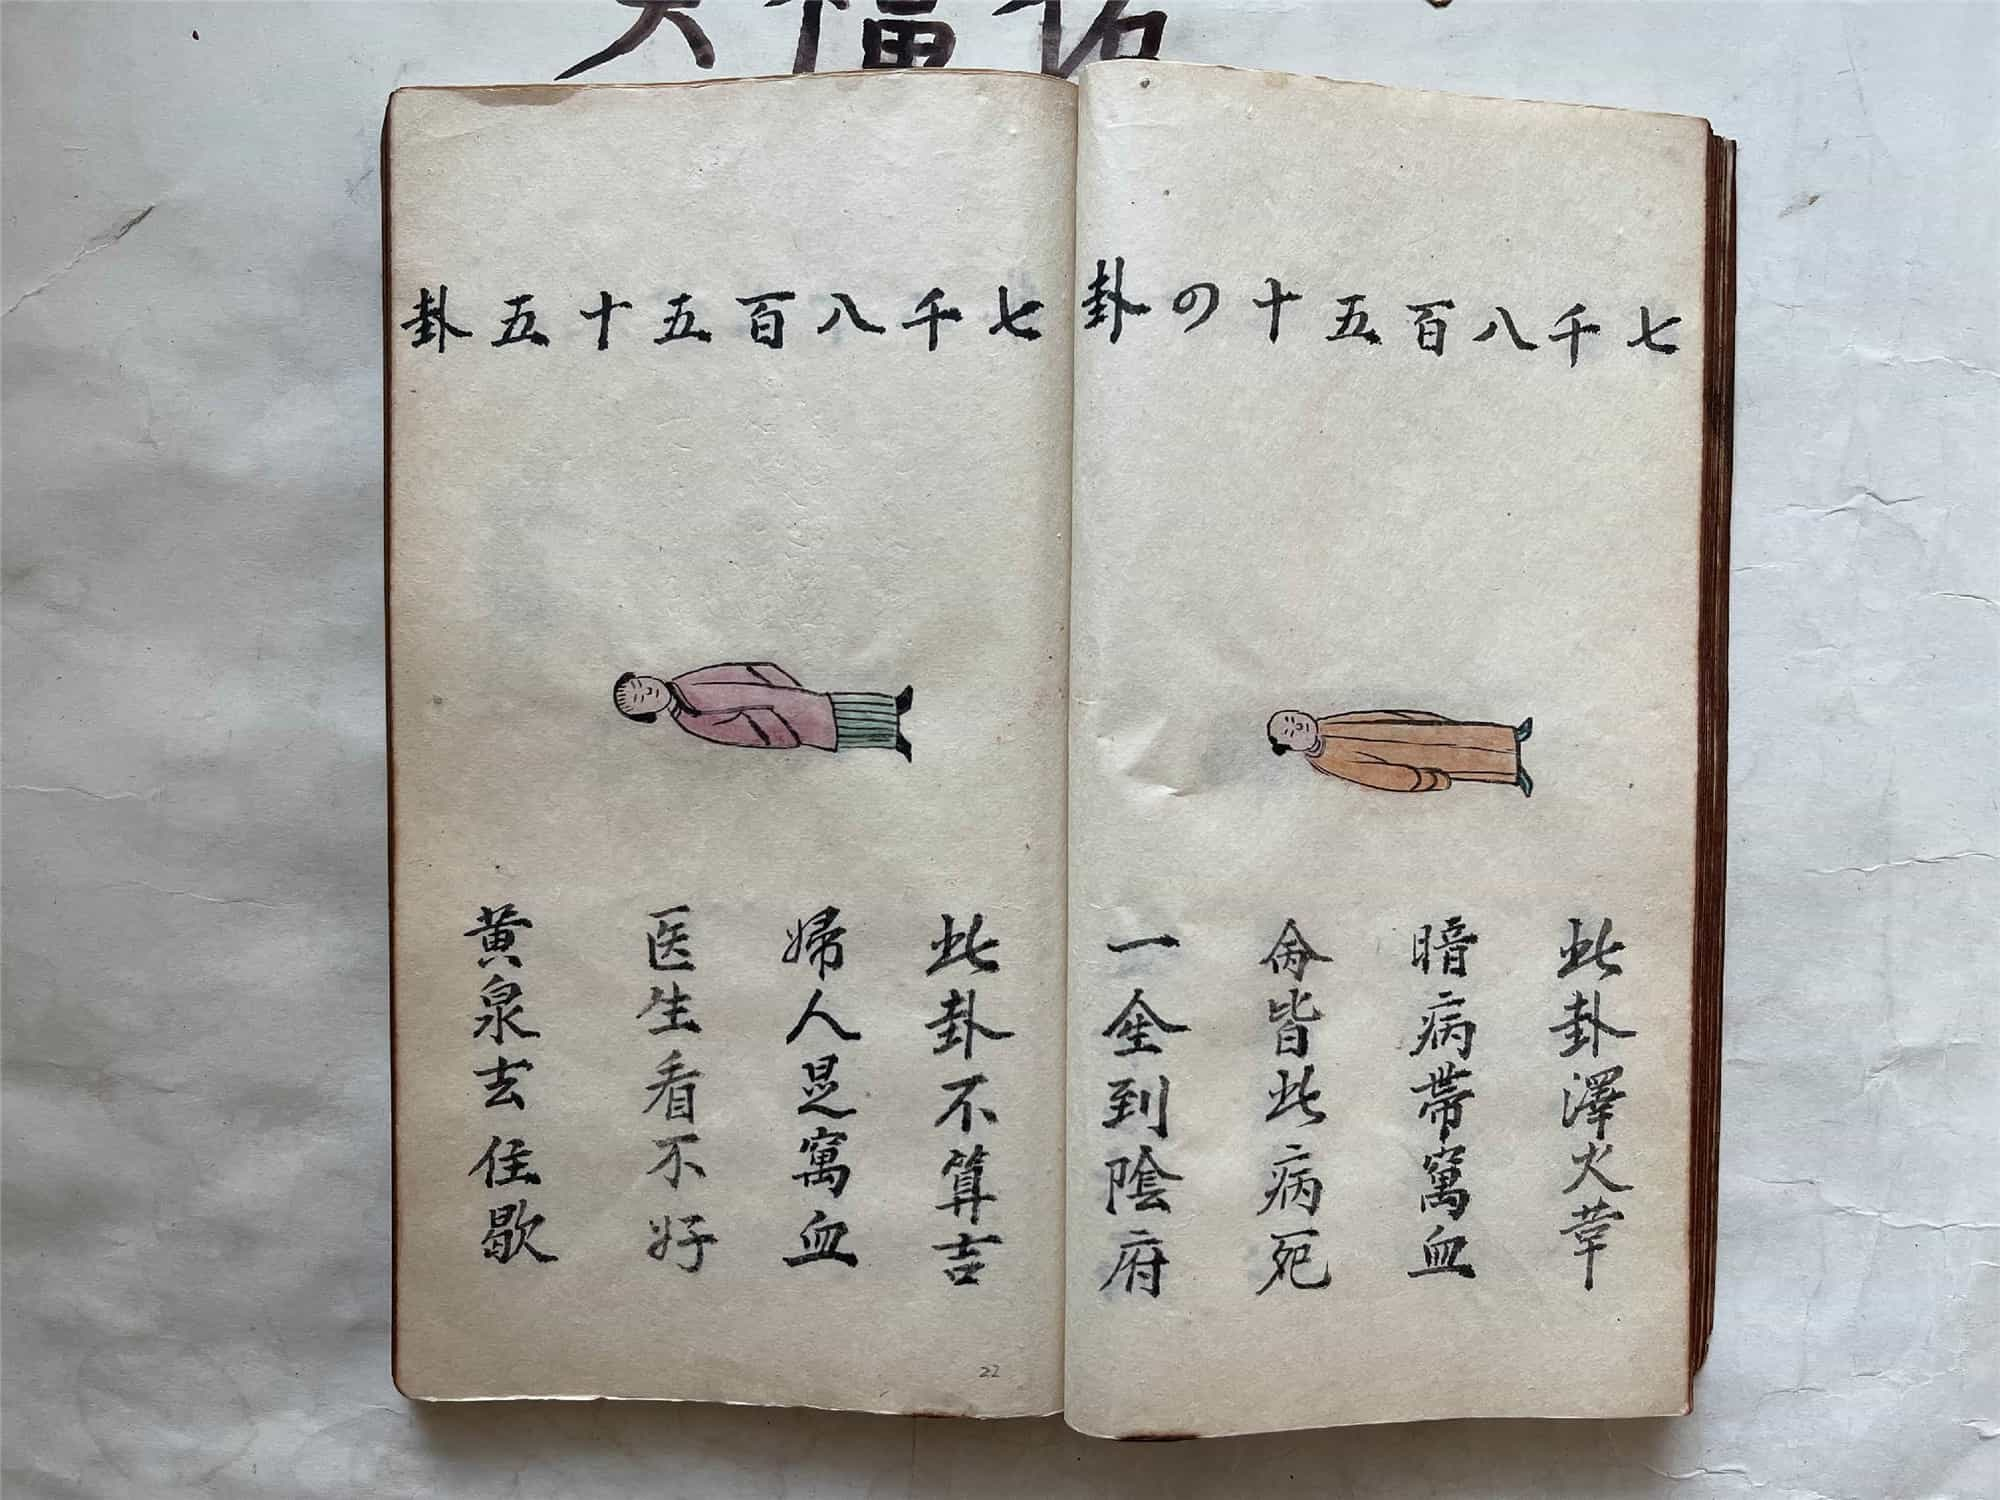 七千八百五十四卦
此卦澤火革
暗病帶窩血
皆此病死
一全到陰府
七千八百五十五卦
此卦不算吉
婦人是窩血
医生看不好
黄泉去住歇
22
福佑